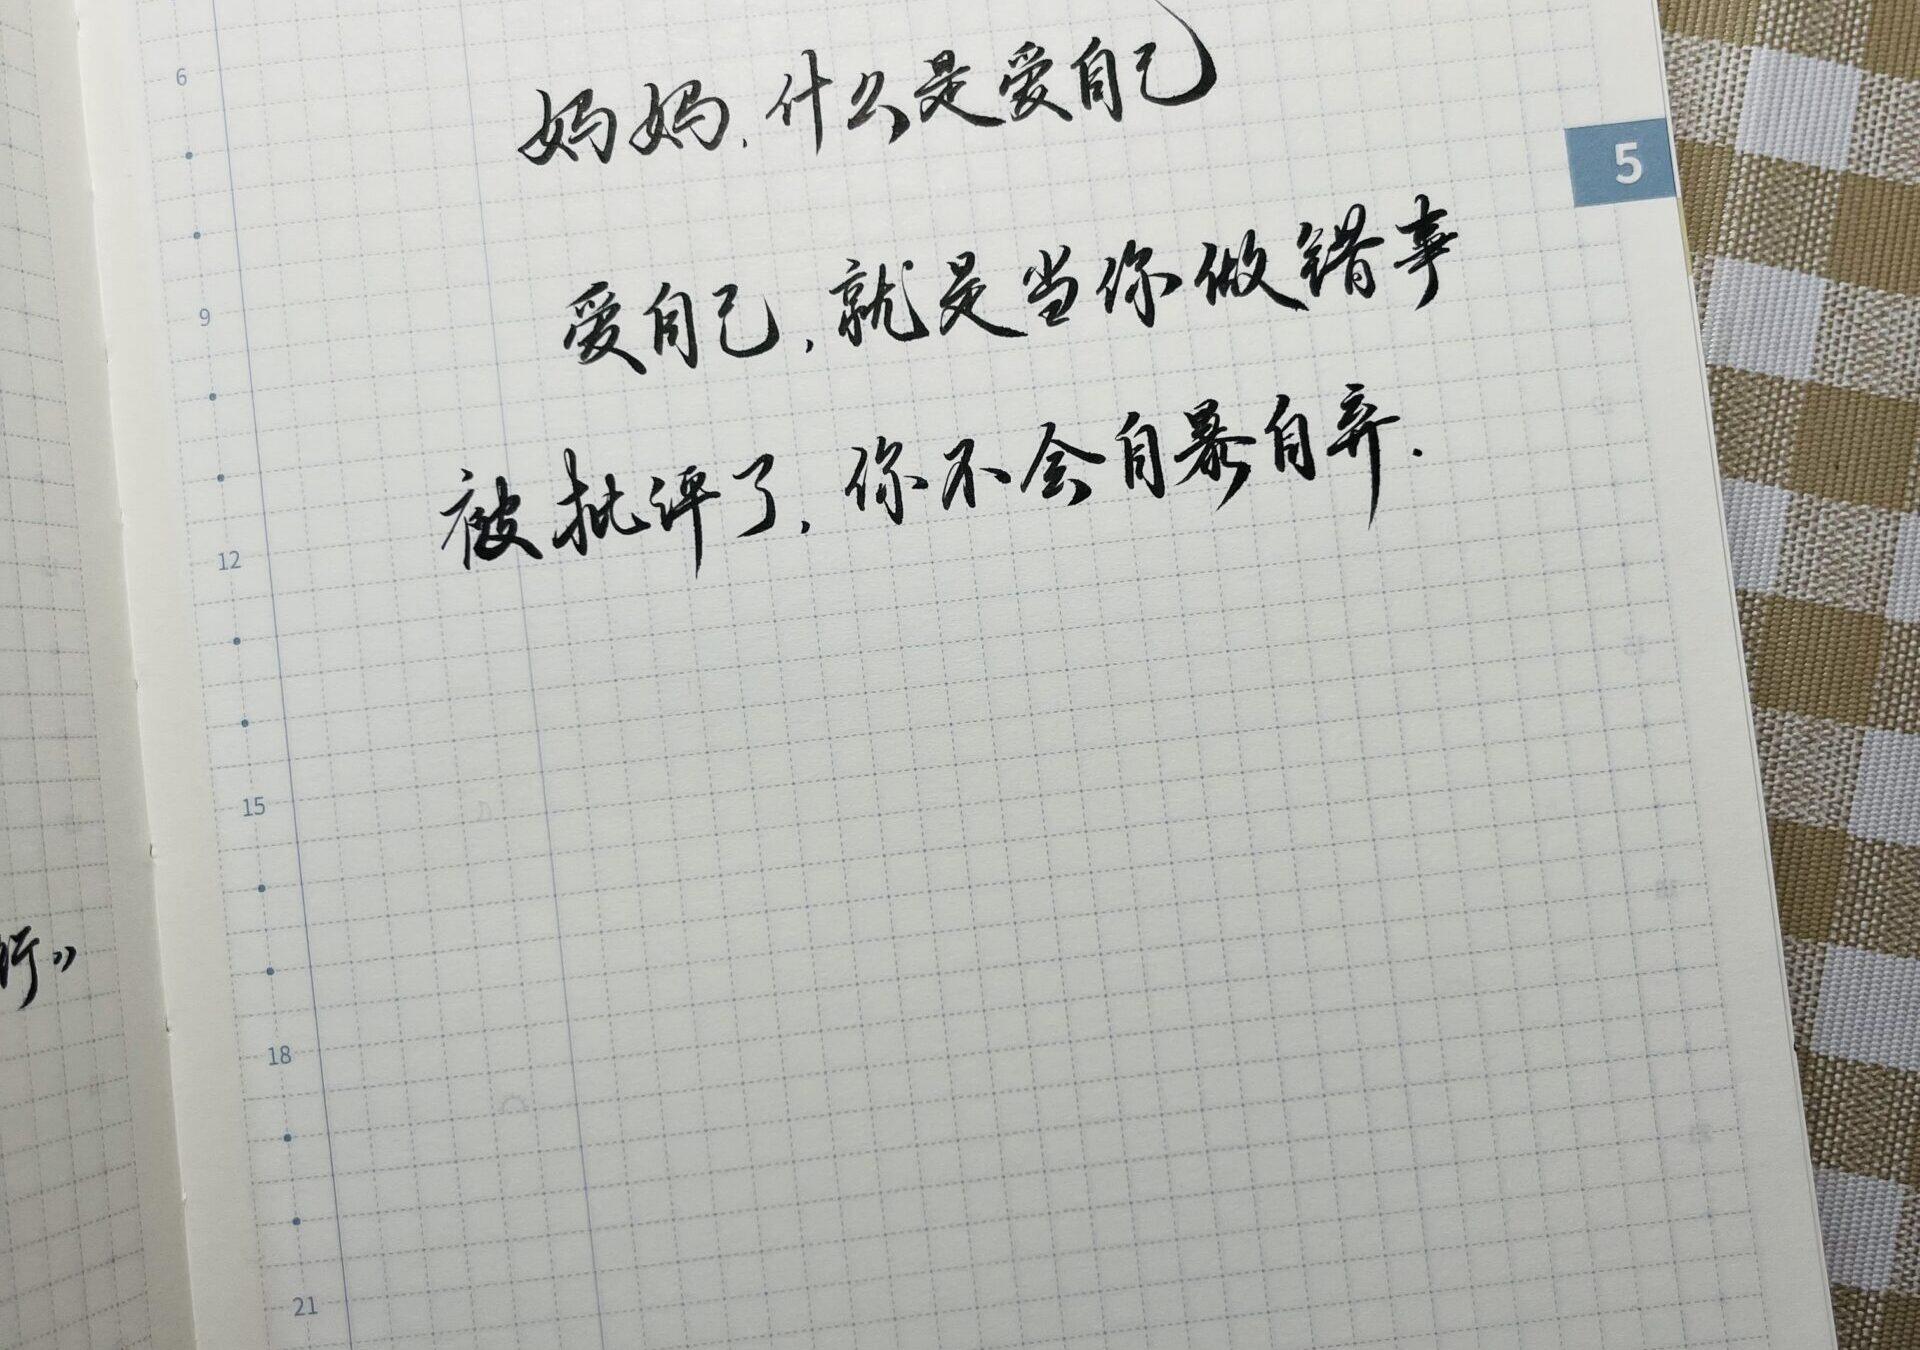 6
妈妈，什么是爱自己
5
9
爱自己，就是当你做错事
被批评了，你不会自暴自弃.
12
15
行》
18
21